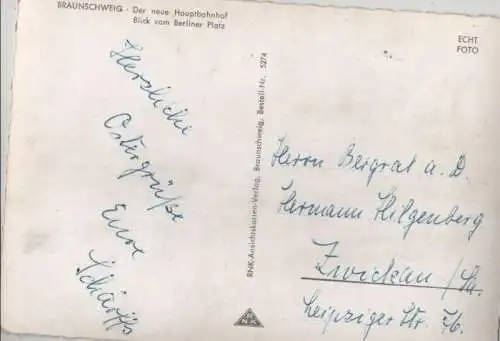 BRAUNSCHWEIG · Der neue Hauptbahnhof
Blick vom Berliner Platz
ECHT
FOTO
Herzliche
Ostergrüße
Eure
Schärffs
RNK-Ansichtskarten-Verlag, Braunschweig, Bestell-Nr. 5274
RNK
Herrn Bergrat a. D.
Hermann Hilgenberg
Zwickau /Sa.
Leipziger Str. 76.